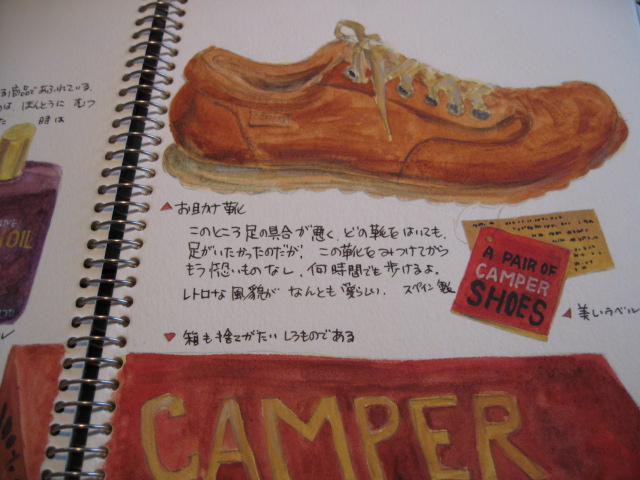 る商品であふれている.
のは ほんとうに むつ
た 時は
OIL
▲お出かけ靴
このところ足の具合が悪く、どの靴をはいても、
足がいたかったのだが、この靴をみつけてから
もう怖いものなし、何時間でも歩けるよ。
レトロな風貌がなんとも愛らしい. スペイン製
A PAIR OF
CAMPER
SHOES
◀美しいラベル
▼箱も捨てがたいしろものである
100%
CAMPER